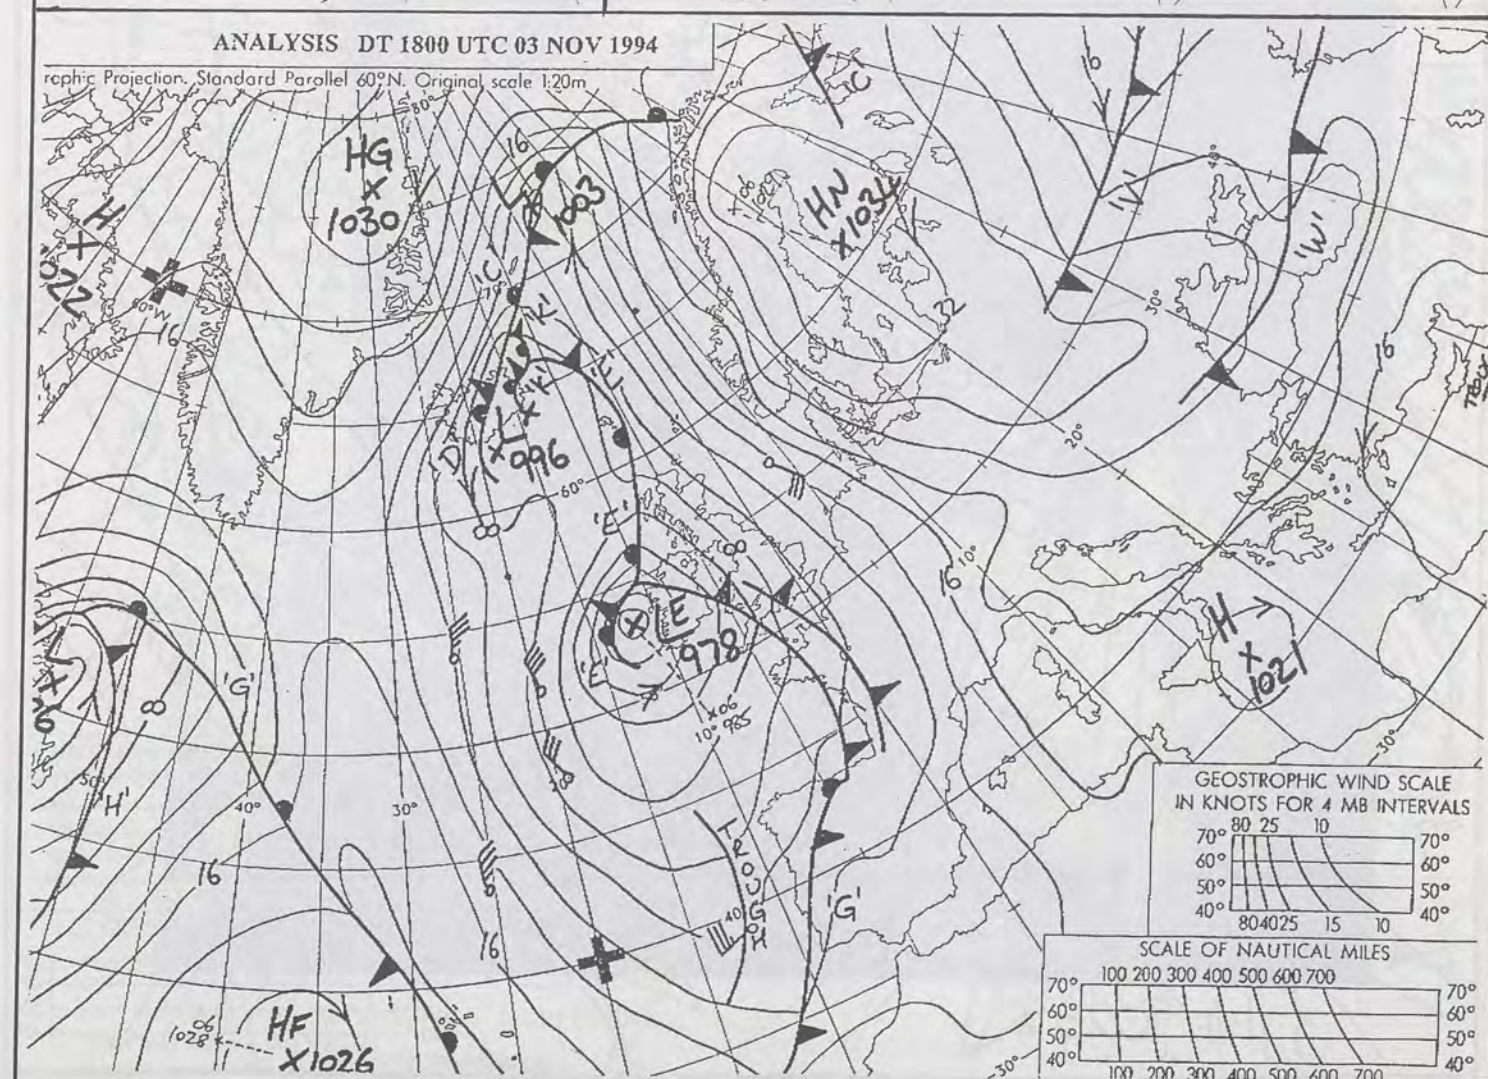 ANALYSIS DT 1800 UTC 03 NOV 1994
raphic Projection. Standard Parallel 60°N. Original scale 1:20m
80°
16
HG
X
1030
H
X
1022
50°W
16
1003
'C'
70°
'K'
'K'
'E'
'D'
L
X
996
60°
8
'E'
8
X
LE
978
'E'
X 06
10° 985
HN
X 1034
32
'V'
'W'
40°
30°
20°
10°
0
16
16
H
X
1021
30°
L
X
8
'G'
'H'
50°
40°
30°
20°
16
16
TROUGH
40
'G'
HF
X 1026
06
1028
30°
GEOSTROPHIC WIND SCALE
IN KNOTS FOR 4 MB INTERVALS
80 25 10
70° 70°
60° 60°
50° 50°
40° 40°
80 40 25 15 10
SCALE OF NAUTICAL MILES
100 200 300 400 500 600 700
70° 70°
60° 60°
50° 50°
40° 40°
100 200 300 400 500 600 700